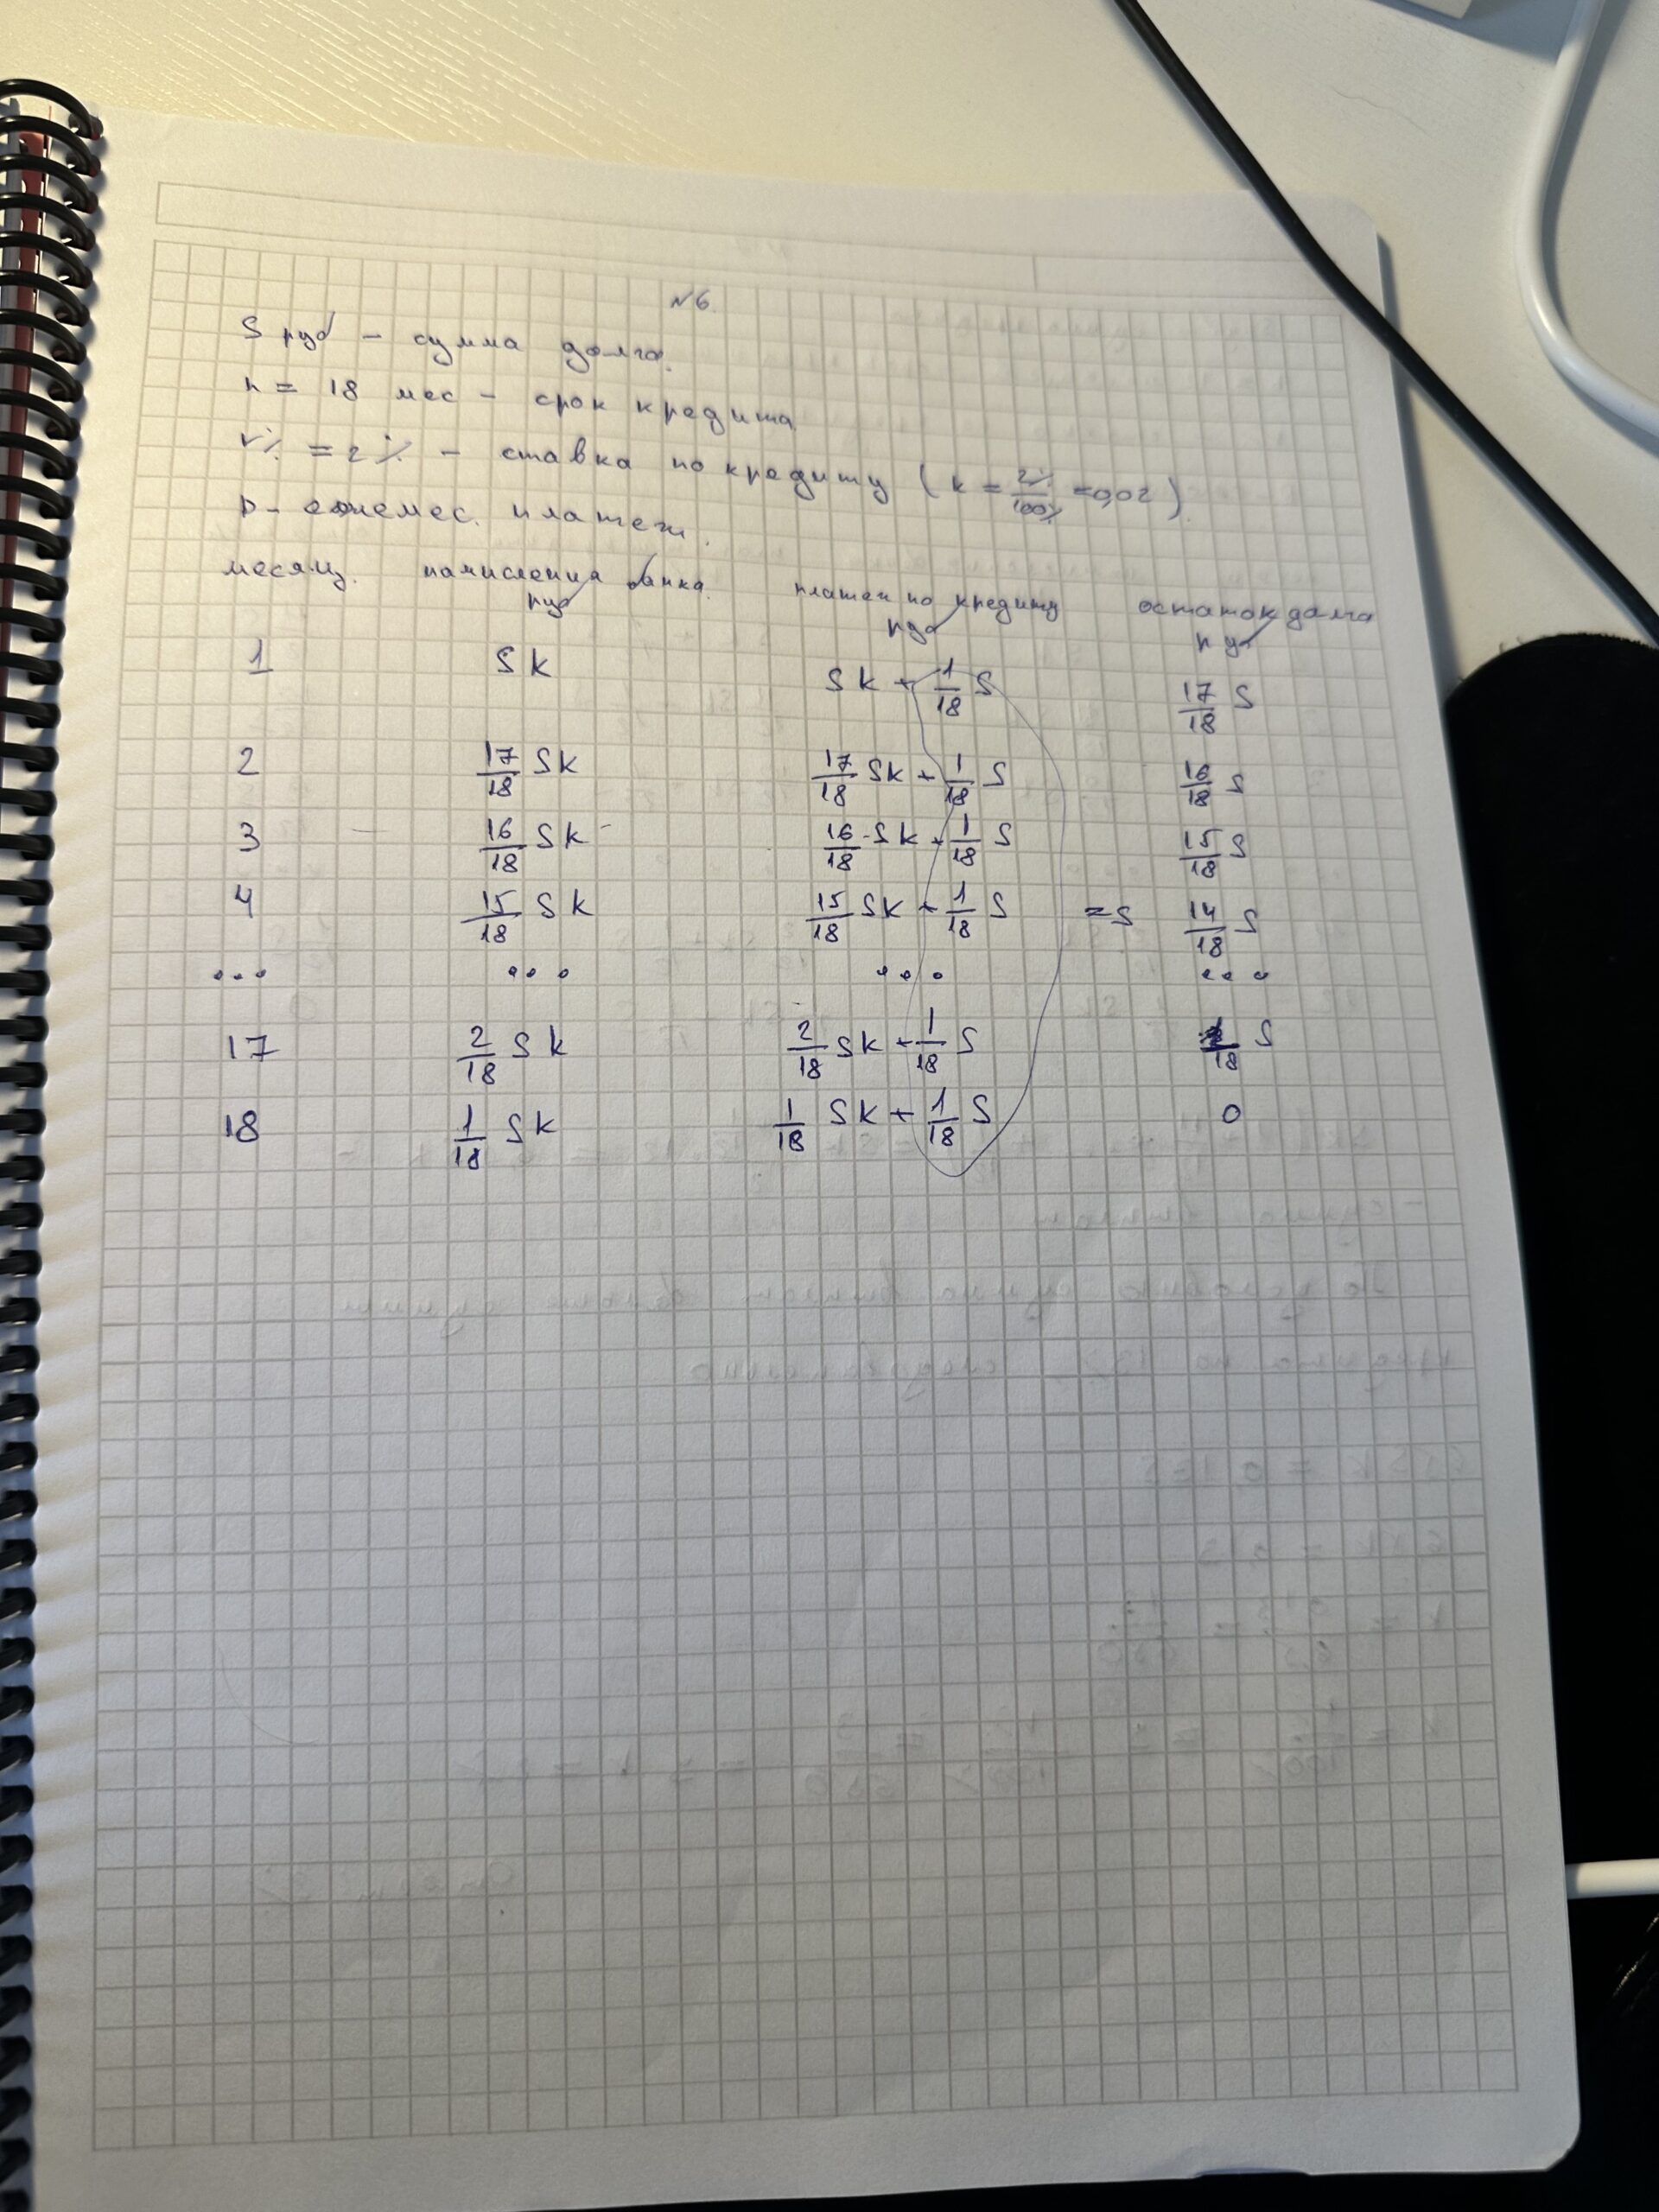 №6.
S руб – сумма долга.
n = 18 мес – срок кредита
r% = 2% – ставка по кредиту (k = 2%/100% = 0,02)
p – ежемес. платеж.
месяц. начисления банка. руб платеж по кредиту руб остаток долга руб
1 Sk Sk + 1/18 S 17/18 S
2 17/18 Sk 17/18 Sk + 1/18 S 16/18 S
3 16/18 Sk 16/18 Sk + 1/18 S 15/18 S
4 15/18 Sk 15/18 Sk + 1/18 S = S 14/18 S
... ... ... ...
17 2/18 Sk 2/18 Sk + 1/18 S 1/18 S
18 1/18 Sk 1/18 Sk + 1/18 S 0